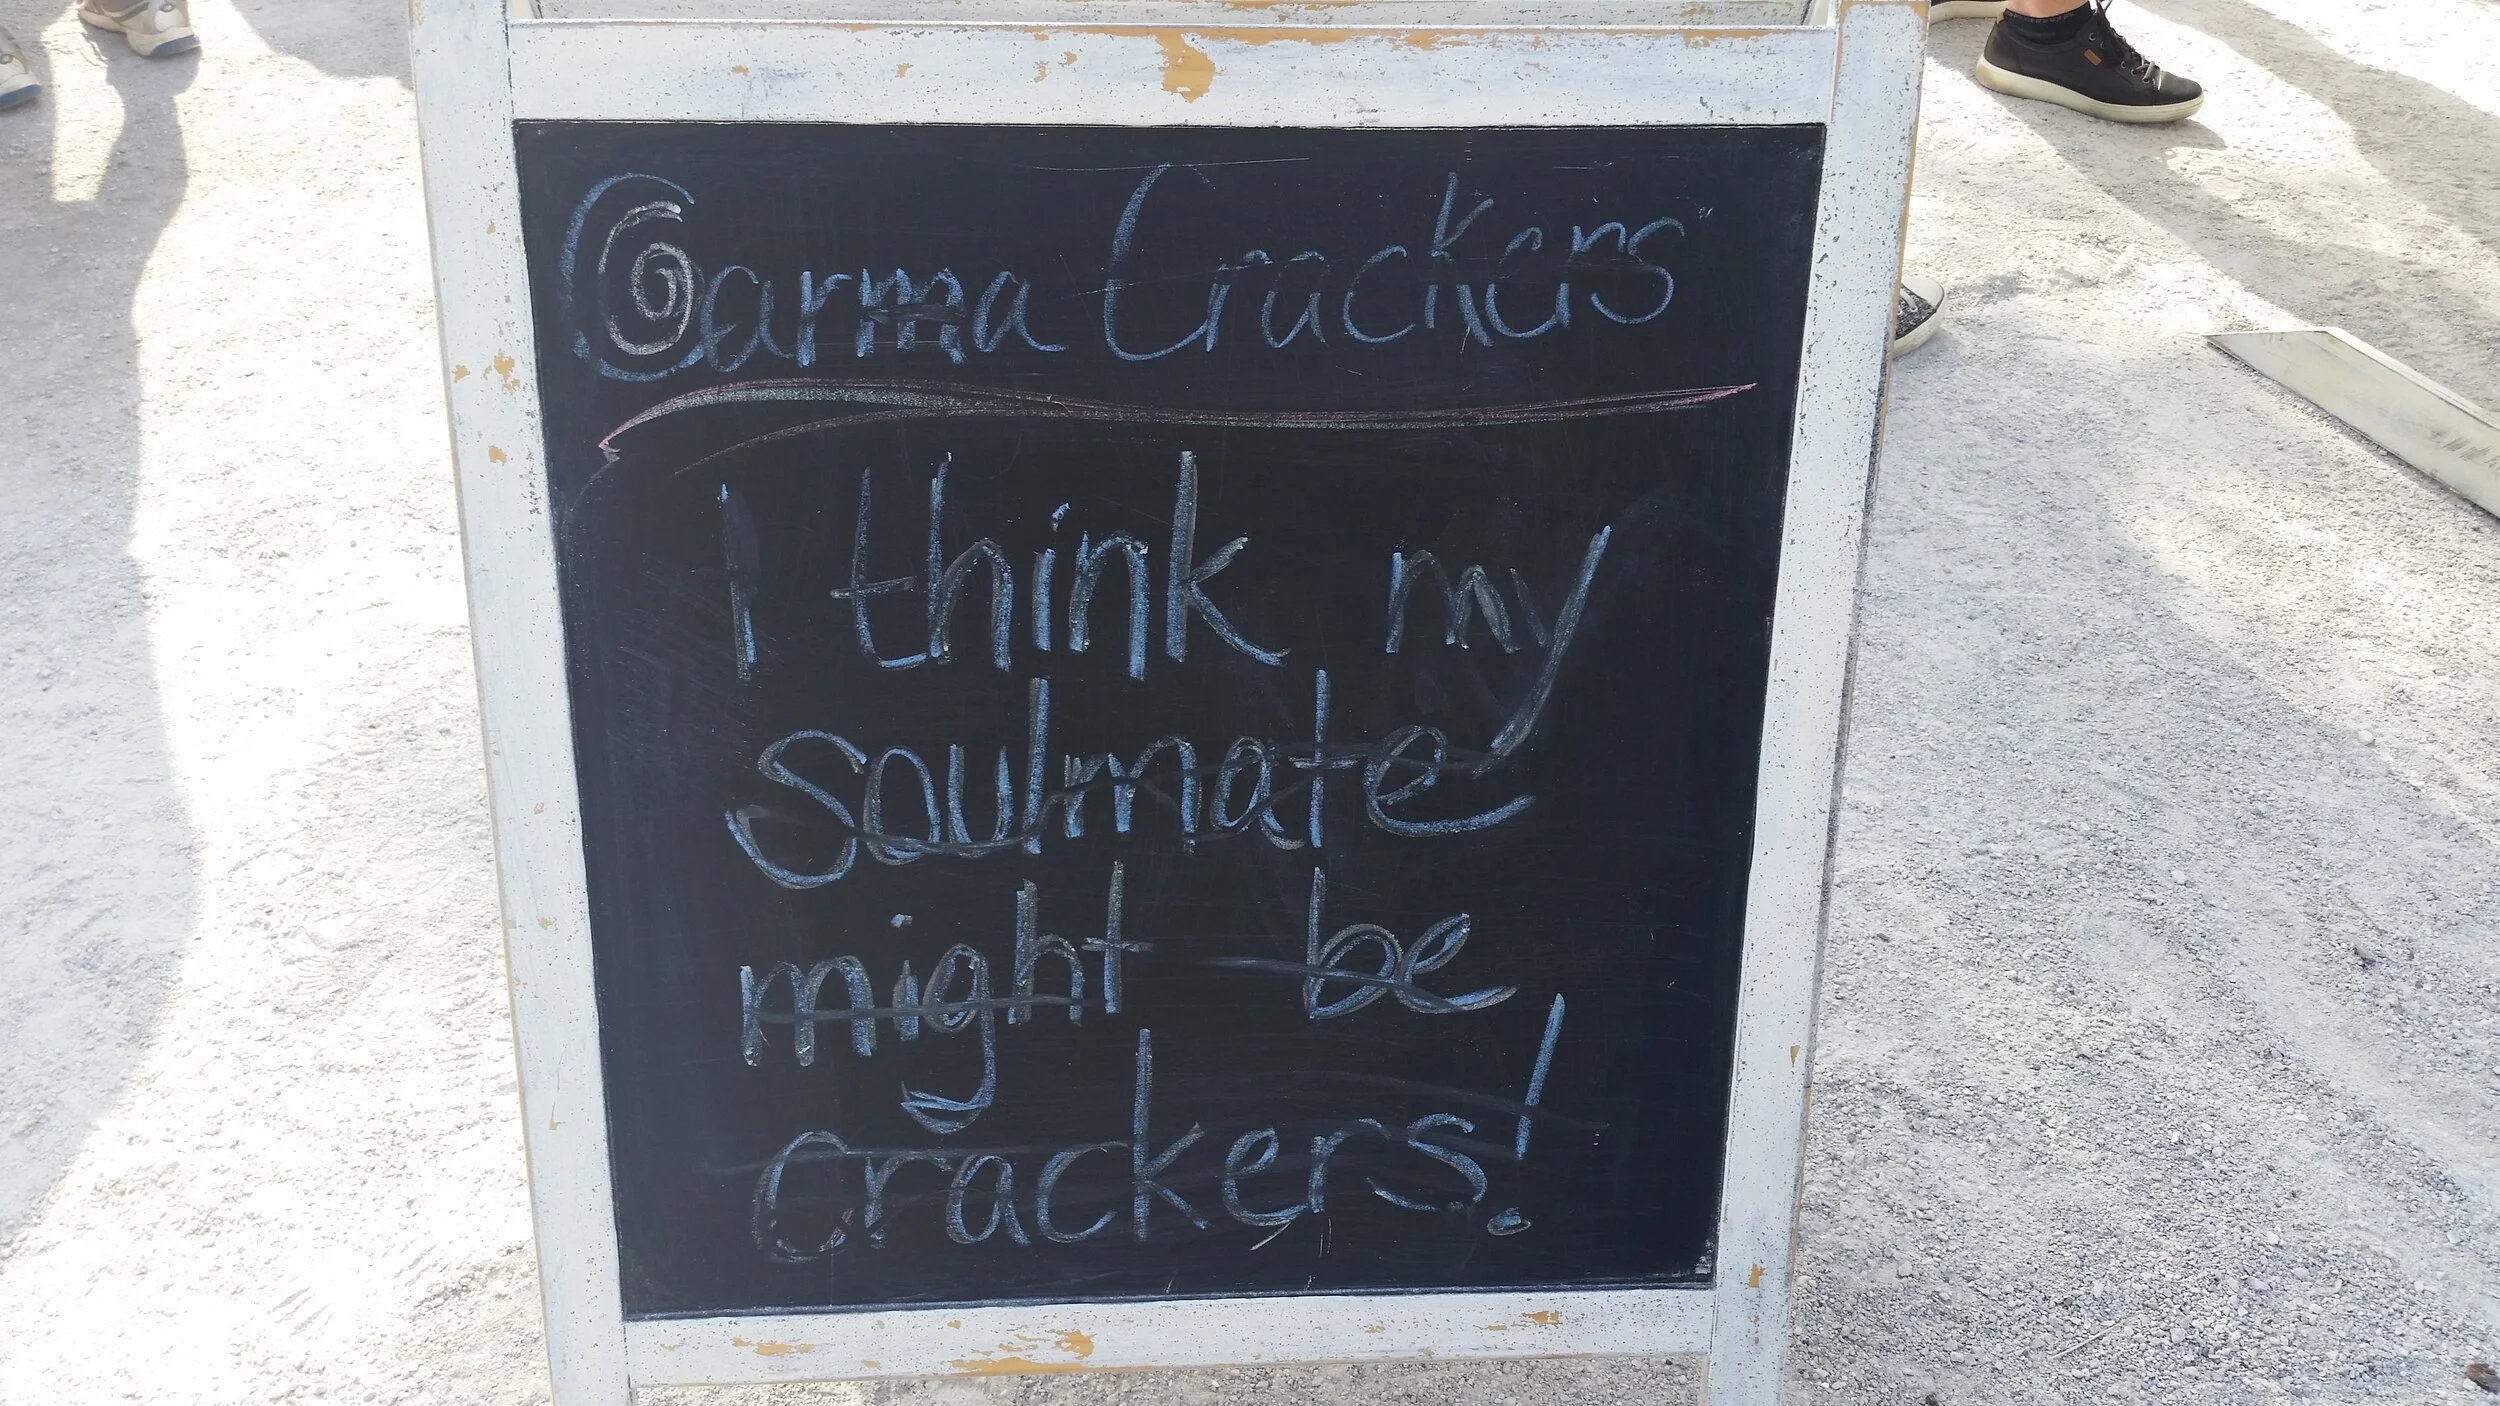 Carma Crackers
I think my
soulmate
might be
crackers!